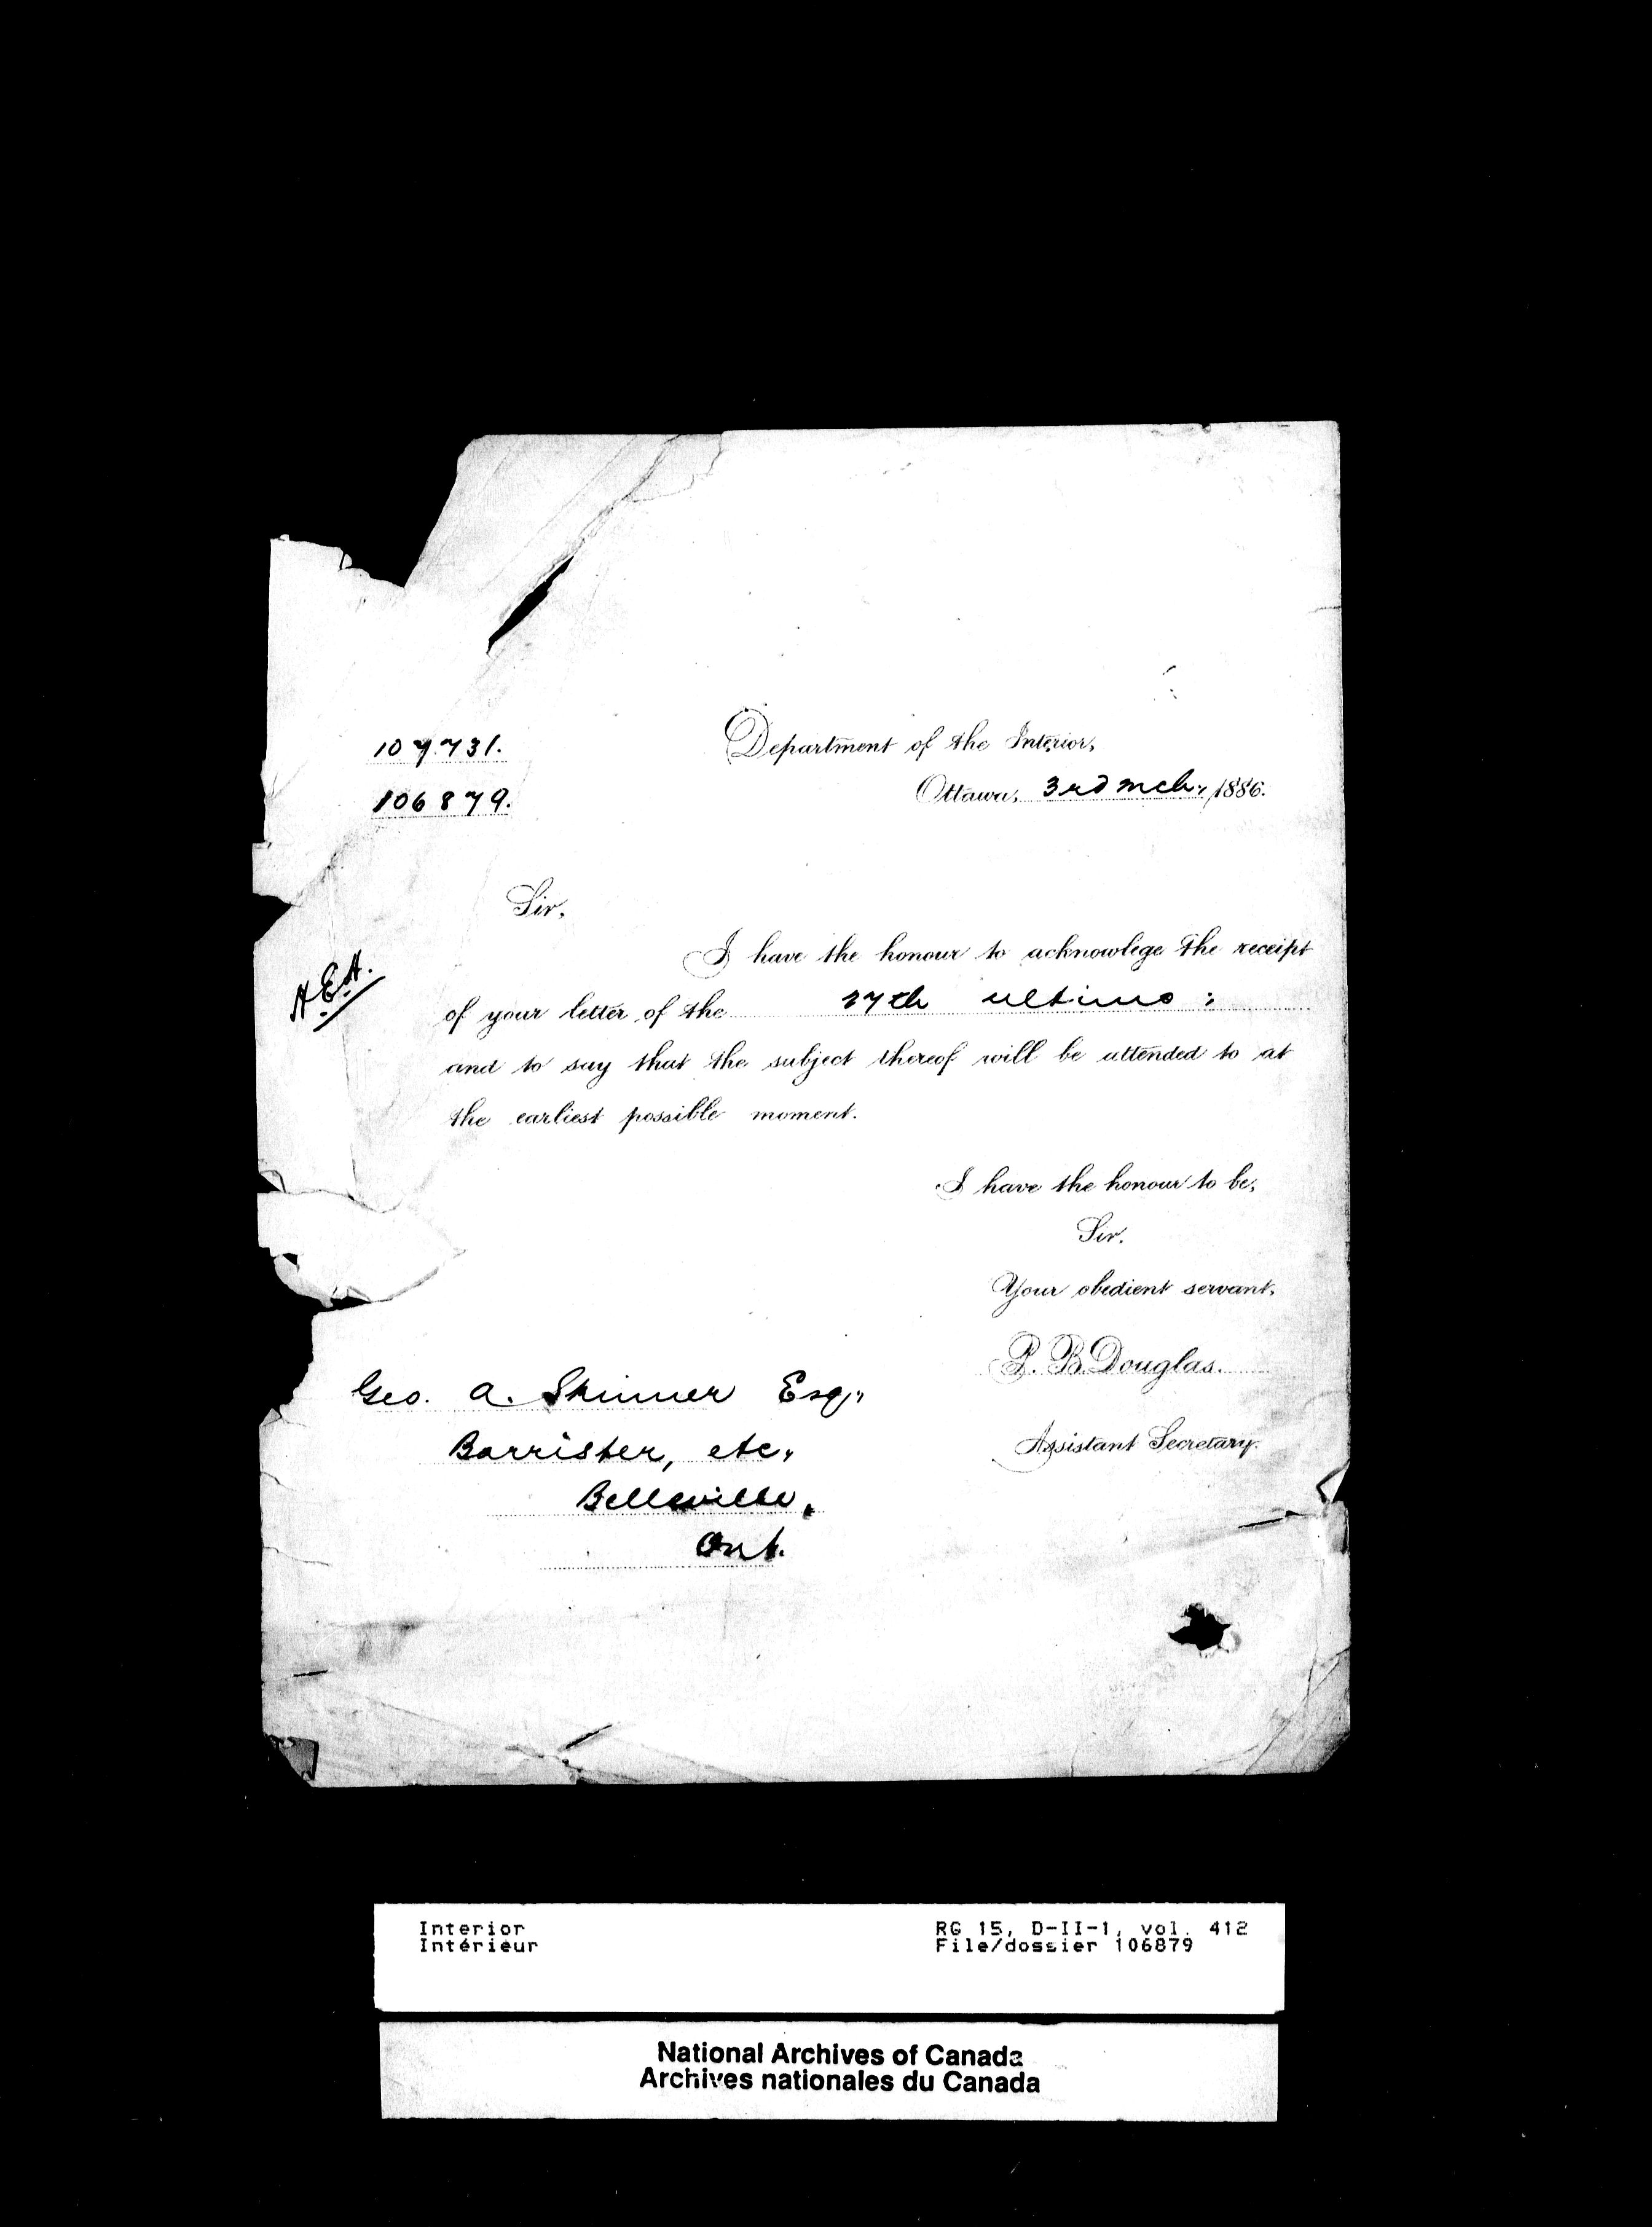 107731.
106879.
Department of the Interior,
Ottawa, 3rd Mch., 1886.
Sir,
A.E.A.
I have the honour to acknowlege the receipt
of your letter of the 27th ultimo;
and to say that the subject thereof will be attended to at
the earliest possible moment.
I have the honour to be,
Sir.
Your obedient servant,
P. B. Douglas.
Assistant Secretary.
Geo. A. Skinner Esq.,
Barrister, etc.,
Belleville,
Ont.
Interior
Intérieur
RG 15, D-II-1, vol. 412
File/dossier 106879
National Archives of Canada
Archives nationales du Canada